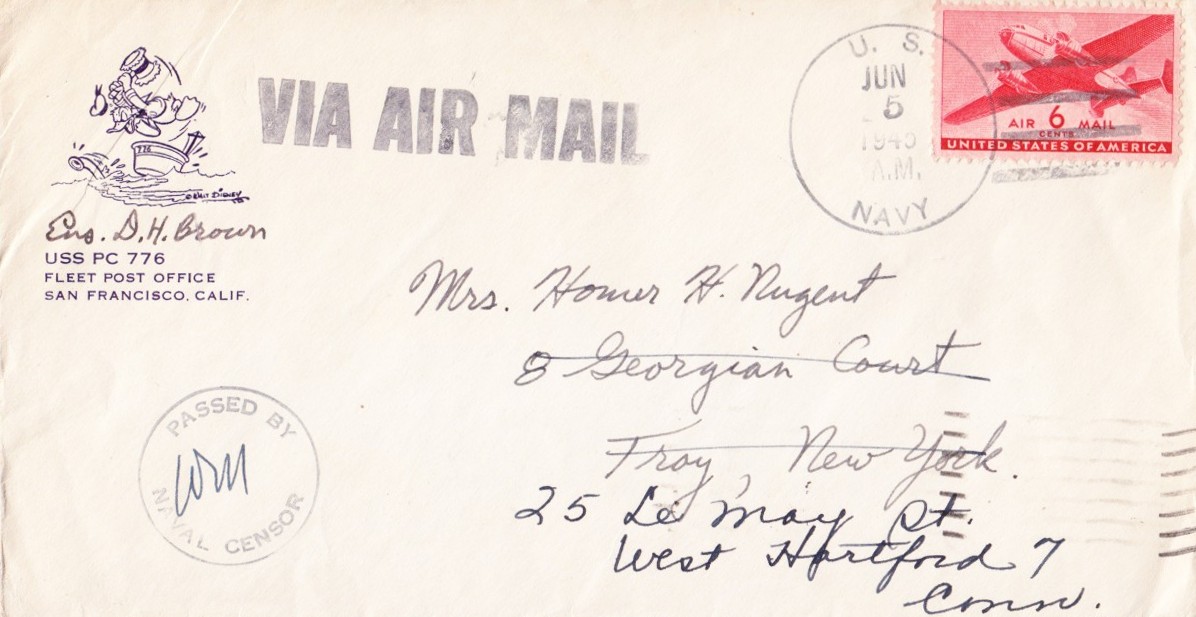 VIA AIR MAIL
U. S.
JUN
5
1945
A.M.
NAVY
AIR 6 MAIL
CENTS
UNITED STATES OF AMERICA
776
© WALT DISNEY
Ens. D. H. Brown
USS PC 776
FLEET POST OFFICE
SAN FRANCISCO, CALIF.
Mrs. Homer H. Nugent
8 Georgian Court
Troy, New York.
25 Le May St.
West Hartford 7
Conn.
PASSED BY
NAVAL CENSOR